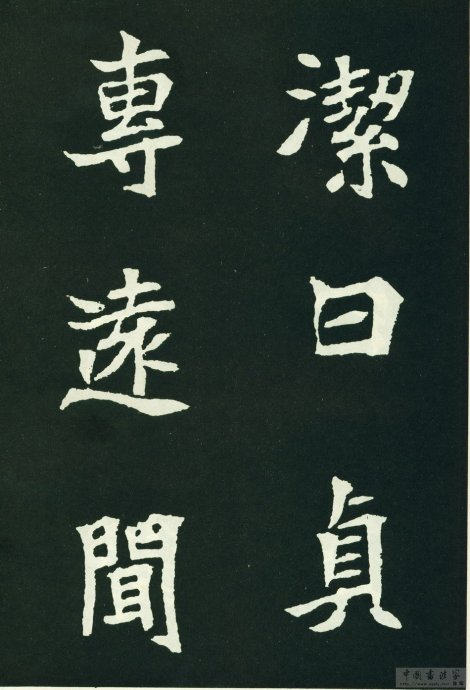 潔曰貞
專遠聞
中國書法家